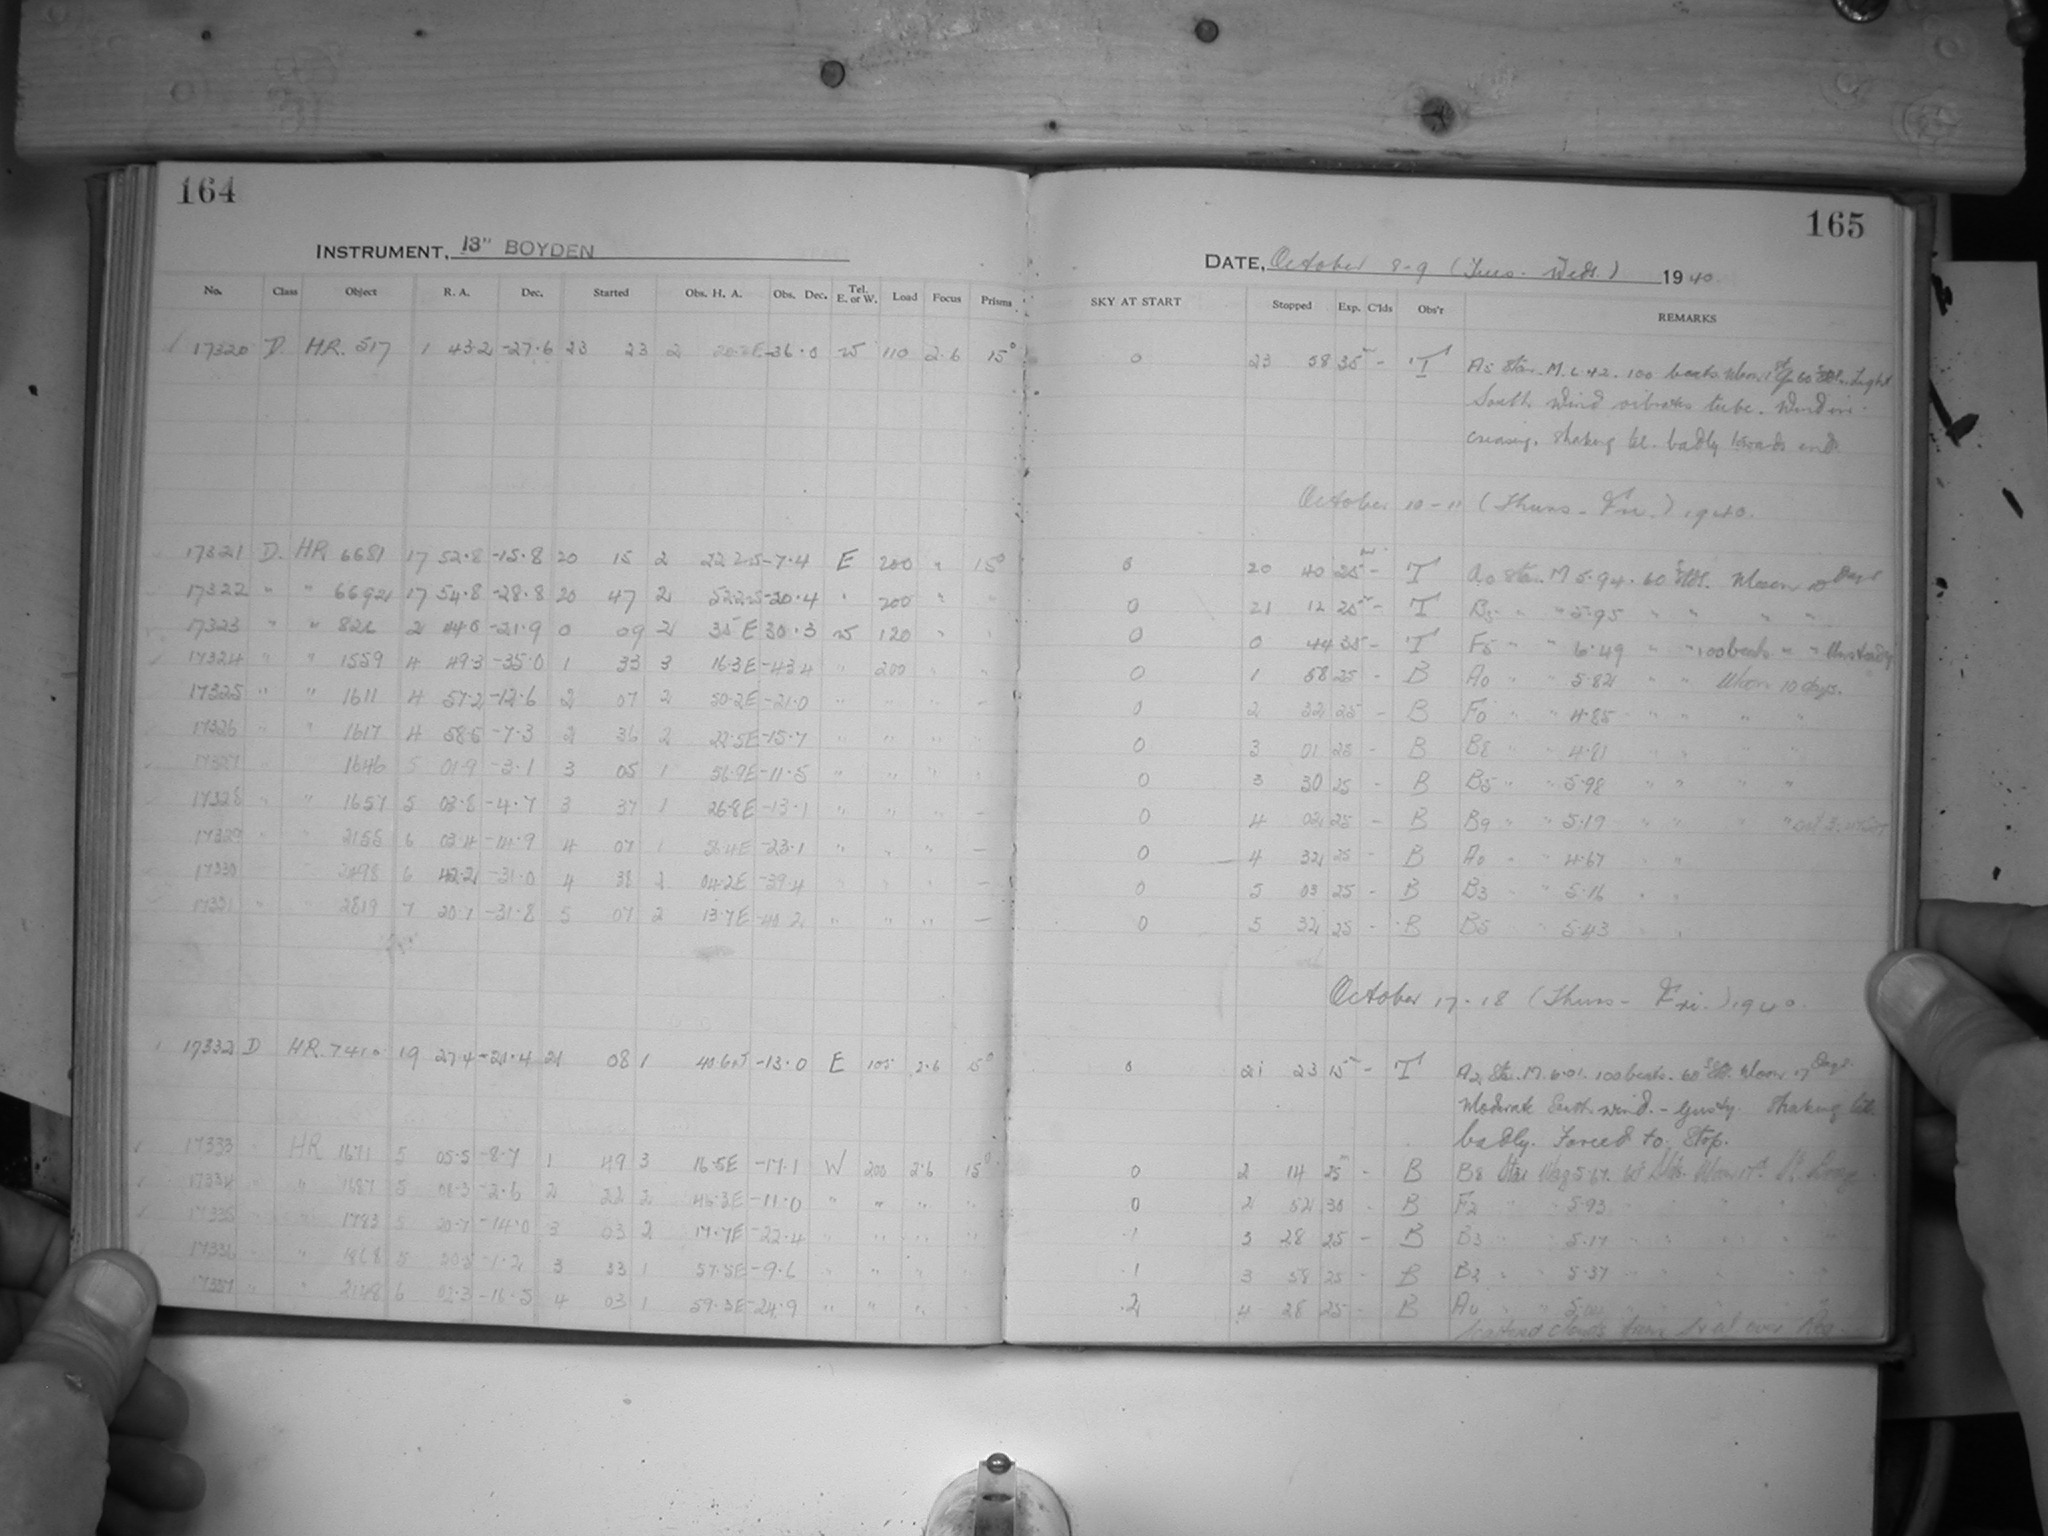 164
INSTRUMENT, 13" BOYDEN
No. Class Object R. A. Dec. Started Obs. H. A. Obs. Dec. Tel. E. or W. Load Focus Prisms
17320 D. H.R. 517 1 43.2 -27.6 23 23 2 E -36.0 W 110 2.6 15°
17321 D. HR 6681 17 52.8 -15.8 20 15 2 -7.4 E 200 " 15°
17322 " " 6692 17 54.8 -28.8 20 47 2 -20.4 " 200 "
17323 " " 2 -21.9 0 09 2 35 E 30.3 W 120 "
17324 " " 1559 4 49.3 -35.0 1 33 3 16.3E -43.4 " 200
17325 " " 1611 4 57.2 -12.6 2 07 2 50.2E -21.0 " " "
17326 " " 1617 4 58.5 -7.3 2 36 2 22.5E -15.7 " " "
17327 1646 5 01.9 -3.1 3 05 1 56.9E -11.5 " " "
17328 " " 1657 5 03.8 -4.7 3 37 1 26.8E -13.1 " " "
17329 " " 2155 6 03.4 -14.9 4 07 1 56.4E -23.1 " " "
17330 2498 6 42.2 -31.0 4 38 2 04.2E -39.4
17331 " " 2819 7 20.7 -31.8 5 07 2 13.7E -40.2 " " "
17332 D HR. 7410 19 27.4 21 08 1 -13.0 E 105 2.6 15°
17333 HR 1671 5 05.5 -8.7 1 49 3 16.5E -17.1 W 200 2.6 15°
17334 " " 1687 5 08.3 -2.6 2 22 2 46.3E -11.0 " " "
17335 " 1783 5 20.7 -14.0 3 03 2 17.7E -22.4 " " "
17336 " 1868 5 -1.2 3 33 1 57.5E -9.6 " " "
17337 " " 2148 6 02.3 -16.5 4 03 1 59.3E -24.9 " " "
165
DATE, October 8-9 (Tues. Weds.) 1940
SKY AT START Stopped Exp. C'lds Obs'r REMARKS
0 23 58 35m - T A5 Star. M. 6.42. 100 beats. Moon 60 Light
South wind vibrates tube. Wind in-
creasing. Shaking tel. badly towards end
October 10-11 (Thurs - Fri.) 1940.
0 20 40 25 - T A0 Star M 5.94. 60 Moon Days
0 21 12 25 - T B5 " " 5.95 " " "
0 0 44 35 - T F5 " " 6.49 " " 100 beats " " Unsteady
0 1 58 25 - B A0 " " 5.82 " " Moon 10 days.
0 2 32 25 - B F0 " " 4.85 " " " "
0 3 01 25 - B B8 " " 4.91 " "
0 3 30 25 - B B5 " " 5.98 " " " "
0 4 02 25 - B B9 " " 5.19 " " "
0 4 32 25 - B A0 " " 4.67 " "
0 5 03 25 - B B3 " " 5.16 "
0 5 32 25 - B B5 " " 5.43 "
October 17-18 (Thurs - Fri.) 1940.
0 21 23 15m - T A2 Str. M. 6.01. 100 beats. 60 Moon 17 Days.
Moderate South wind. - Gusty. Shaking tel.
badly. Forced to stop.
0 2 14 25m - B B8 Star Mag 5.67. 60 Moon 17d.
0 2 52 30 - B F2 " " 5.93
1 3 28 25 - B B3 " " 5.17 "
1 3 58 25 - B B2 " " 5.37 "
2 4 28 25 - B A0 " "
Scattered clouds